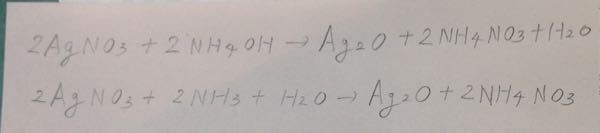 2AgNO3 + 2NH4OH → Ag2O + 2NH4NO3 + H2O
2AgNO3 + 2NH3 + H2O → Ag2O + 2NH4NO3